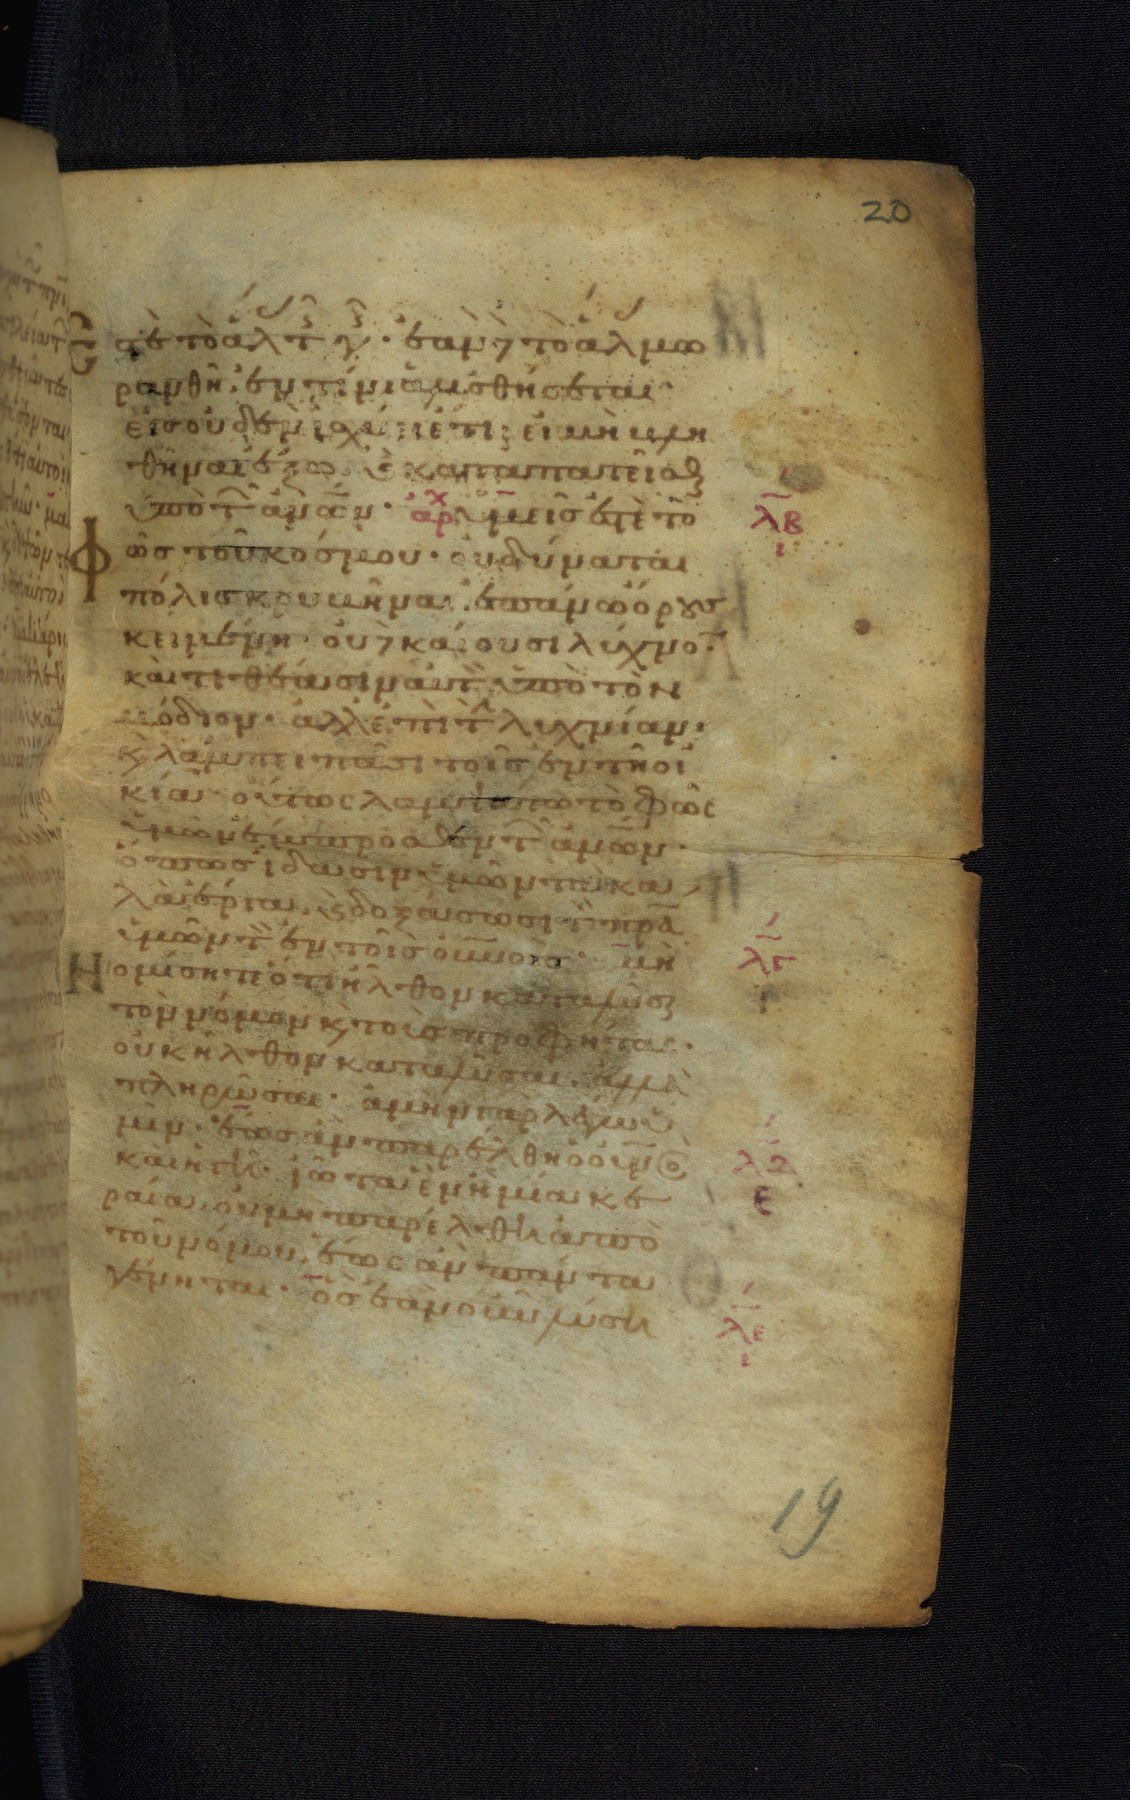 20
Ε στὲ τὸ ἅλ τ γ · ἐὰν δὲ τὸ ἅλ μω
ρανθῆ, ἐν τίνι ἁλισθήσεται·
εἰς οὐδὲν ἰσχύει ἔτι· εἰ μὴ βλη
θῆναι ἔξω κ καταπατεῖσθ
ὑπὸ τ ἀνων· αρχ ὑμεῖς ἐστὲ τὸ
λβ
Φ ῶς τοῦ κόσμου· οὐ δύναται
πόλις κρυβῆναι ἐπάνω ὄρους
κειμένη· οὐδὲ καίουσι λύχνον
καὶ τιθέασιν αὐτ ὑπὸ τὸν
μόδιον· ἀλλ ἐπὶ τ λυχνίαν·
κ λάμπει πᾶσι τοῖς ἐν τῆ οἰ
κία· οὕτως λαμψάτω τὸ φῶς
ὑμῶν ἔμπροσθεν τ ἀνων·
ὅπως ἴδωσιν ὑμῶν τὰ κα
λὰ ἔργα, κ δοξάσωσι τ πρα
ὑμῶν τ ἐν τοῖς οὐνοις· μὴ
λγ
Ν ομίσητε ὅτι ἦλθον καταλῦσ
τὸν νόμον κ τοὺς προφήτας·
οὐκ ἦλθον καταλῦσαι, ἀλλὰ
πληρῶσαι· ἀμὴν γὰρ λέγω ὑ
μῖν· ἕως ἂν παρέλθη ὁ οὐνος
λδ
καὶ ἡ γῆ· ἰῶτα ἓν ἢ μία κε
ραία οὐ μὴ παρέλθη ἀπὸ
τοῦ νόμου, ἕως ἂν πάντα
γένηται· ὃς ἐὰν οὖν λύση
λε
19